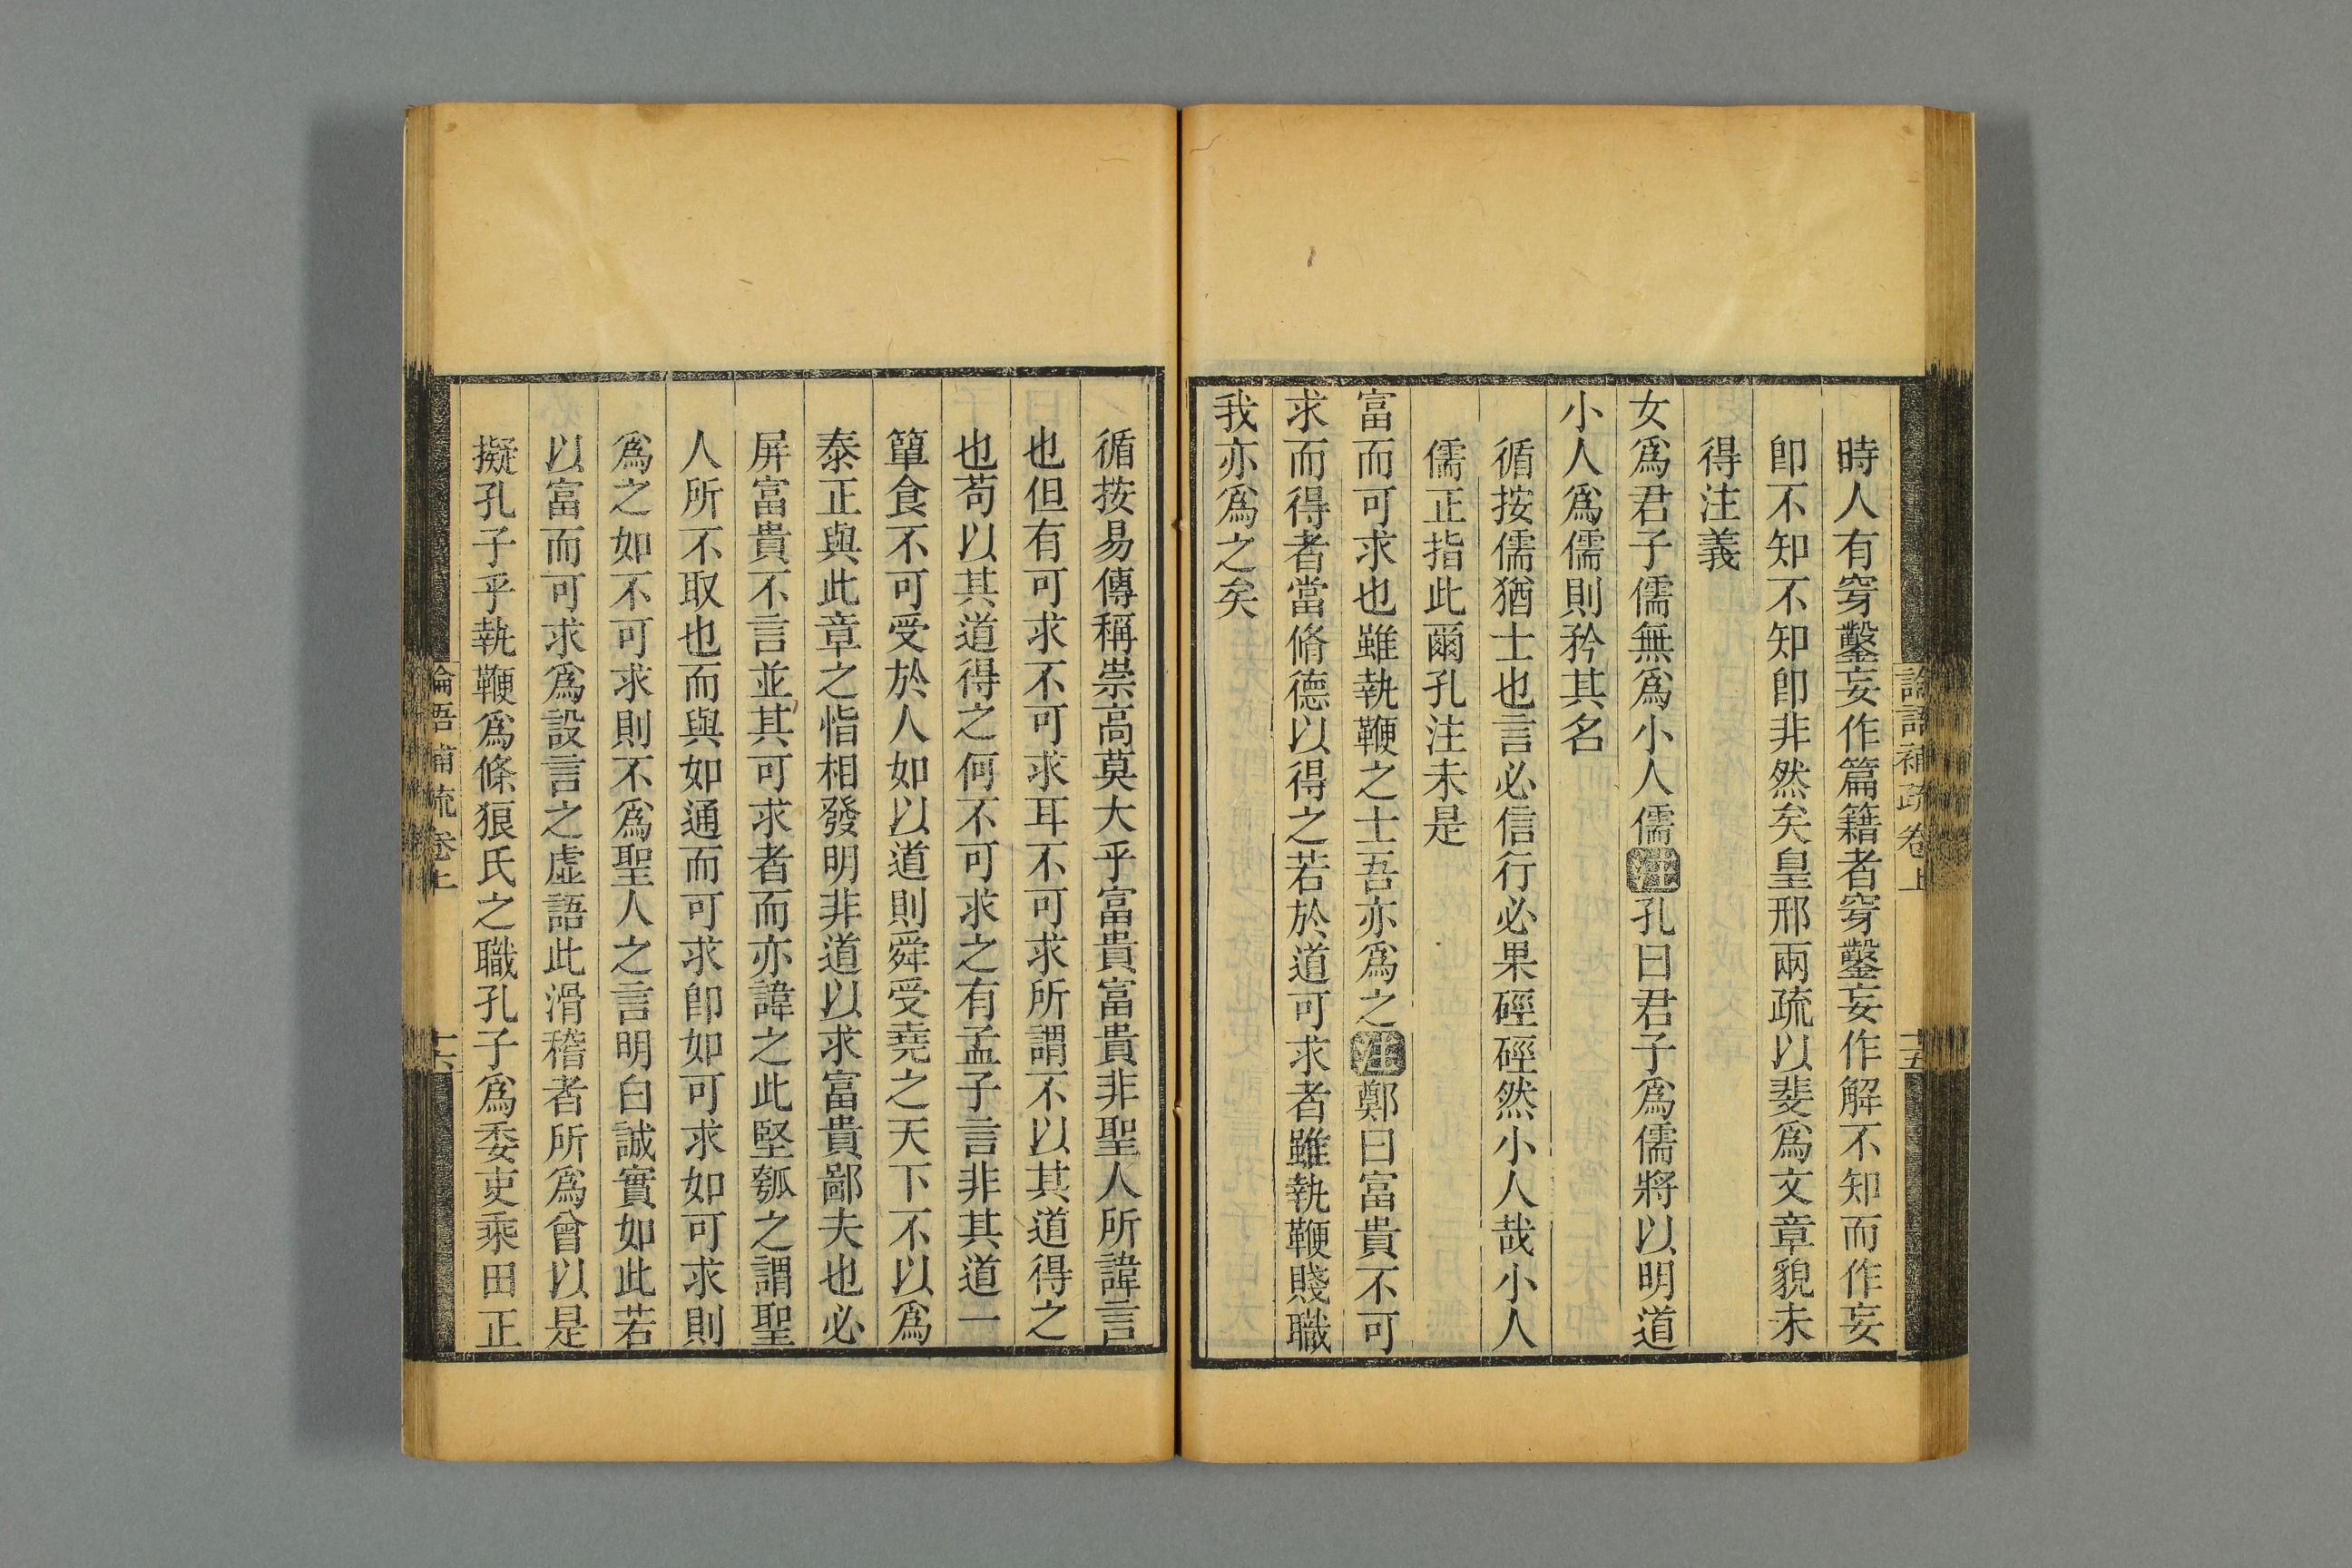 論語補疏卷上
十五
時人有穿鑿妄作篇籍者穿鑿妄作解不知而作妄
卽不知不知卽非然矣皇邢兩疏以斐爲文章貌未
得注義
女爲君子儒無爲小人儒注孔曰君子爲儒將以明道
小人爲儒則矜其名
循按儒猶士也言必信行必果硜硜然小人哉小人
儒正指此爾孔注未是
富而可求也雖執鞭之士吾亦爲之注鄭曰富貴不可
求而得者當脩德以得之若於道可求者雖執鞭賤職
我亦爲之矣
循按易傳稱崇高莫大乎富貴富貴非聖人所諱言
也但有可求不可求耳不可求所謂不以其道得之
也苟以其道得之何不可求之有孟子言非其道一
簞食不可受於人如以道則舜受堯之天下不以爲
泰正與此章之恉相發明非道以求富貴鄙夫也必
屏富貴不言並其可求者而亦諱之此堅瓠之謂聖
人所不取也而與如通而可求卽如可求如可求則
爲之如不可求則不爲聖人之言明白誠實如此若
以富而可求爲設言之虛語此滑稽者所爲曾以是
擬孔子乎執鞭爲條狼氏之職孔子爲委吏乘田正
論語補疏卷上
十六